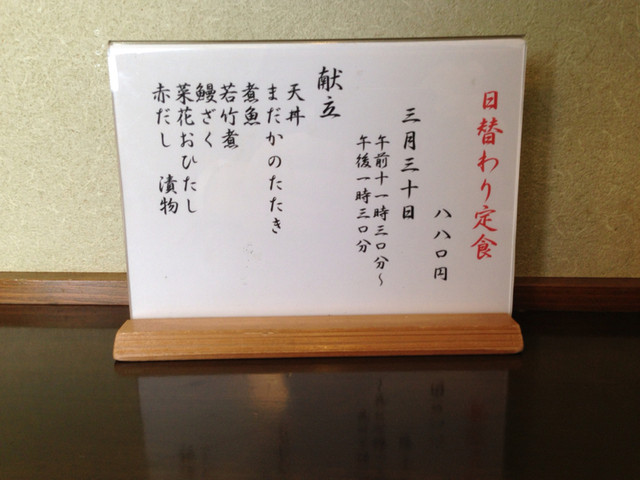 日替わり定食
八八〇円
三月三十日
午前十一時三〇分～
午後一時三〇分
献立
天丼
まだかのたたき
煮魚
若竹煮
鰻ざく
菜花おひたし
赤だし 漬物